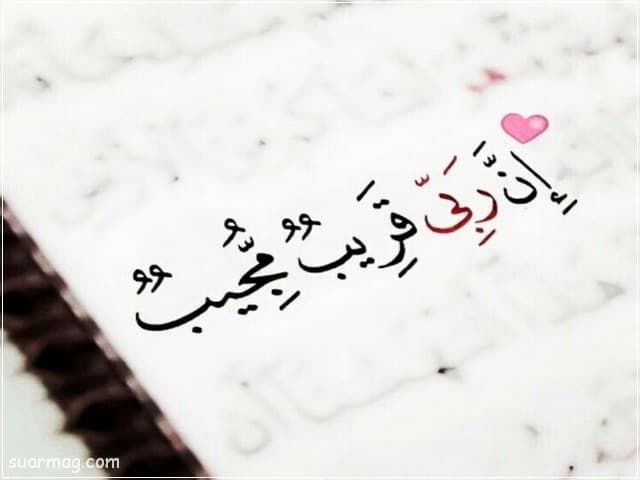 إِنَّ رَبِّي قَرِيبٌ مُّجِيبٌ
suarmag.com